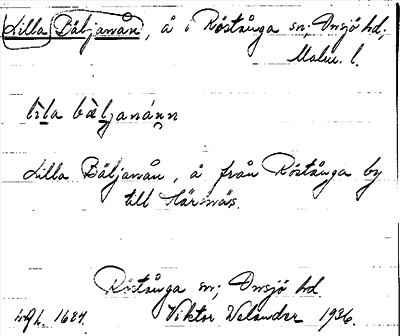 Lilla Bäljanån, å i Röstånga sn; Onsjö hd;
Malm. l.
lìla bæ̀ljanánn
Lilla Bäljanån, å från Röstånga by
till Härsnäs.
Röstånga sn; Onsjö hd
1684. Viktor Velander 1936.